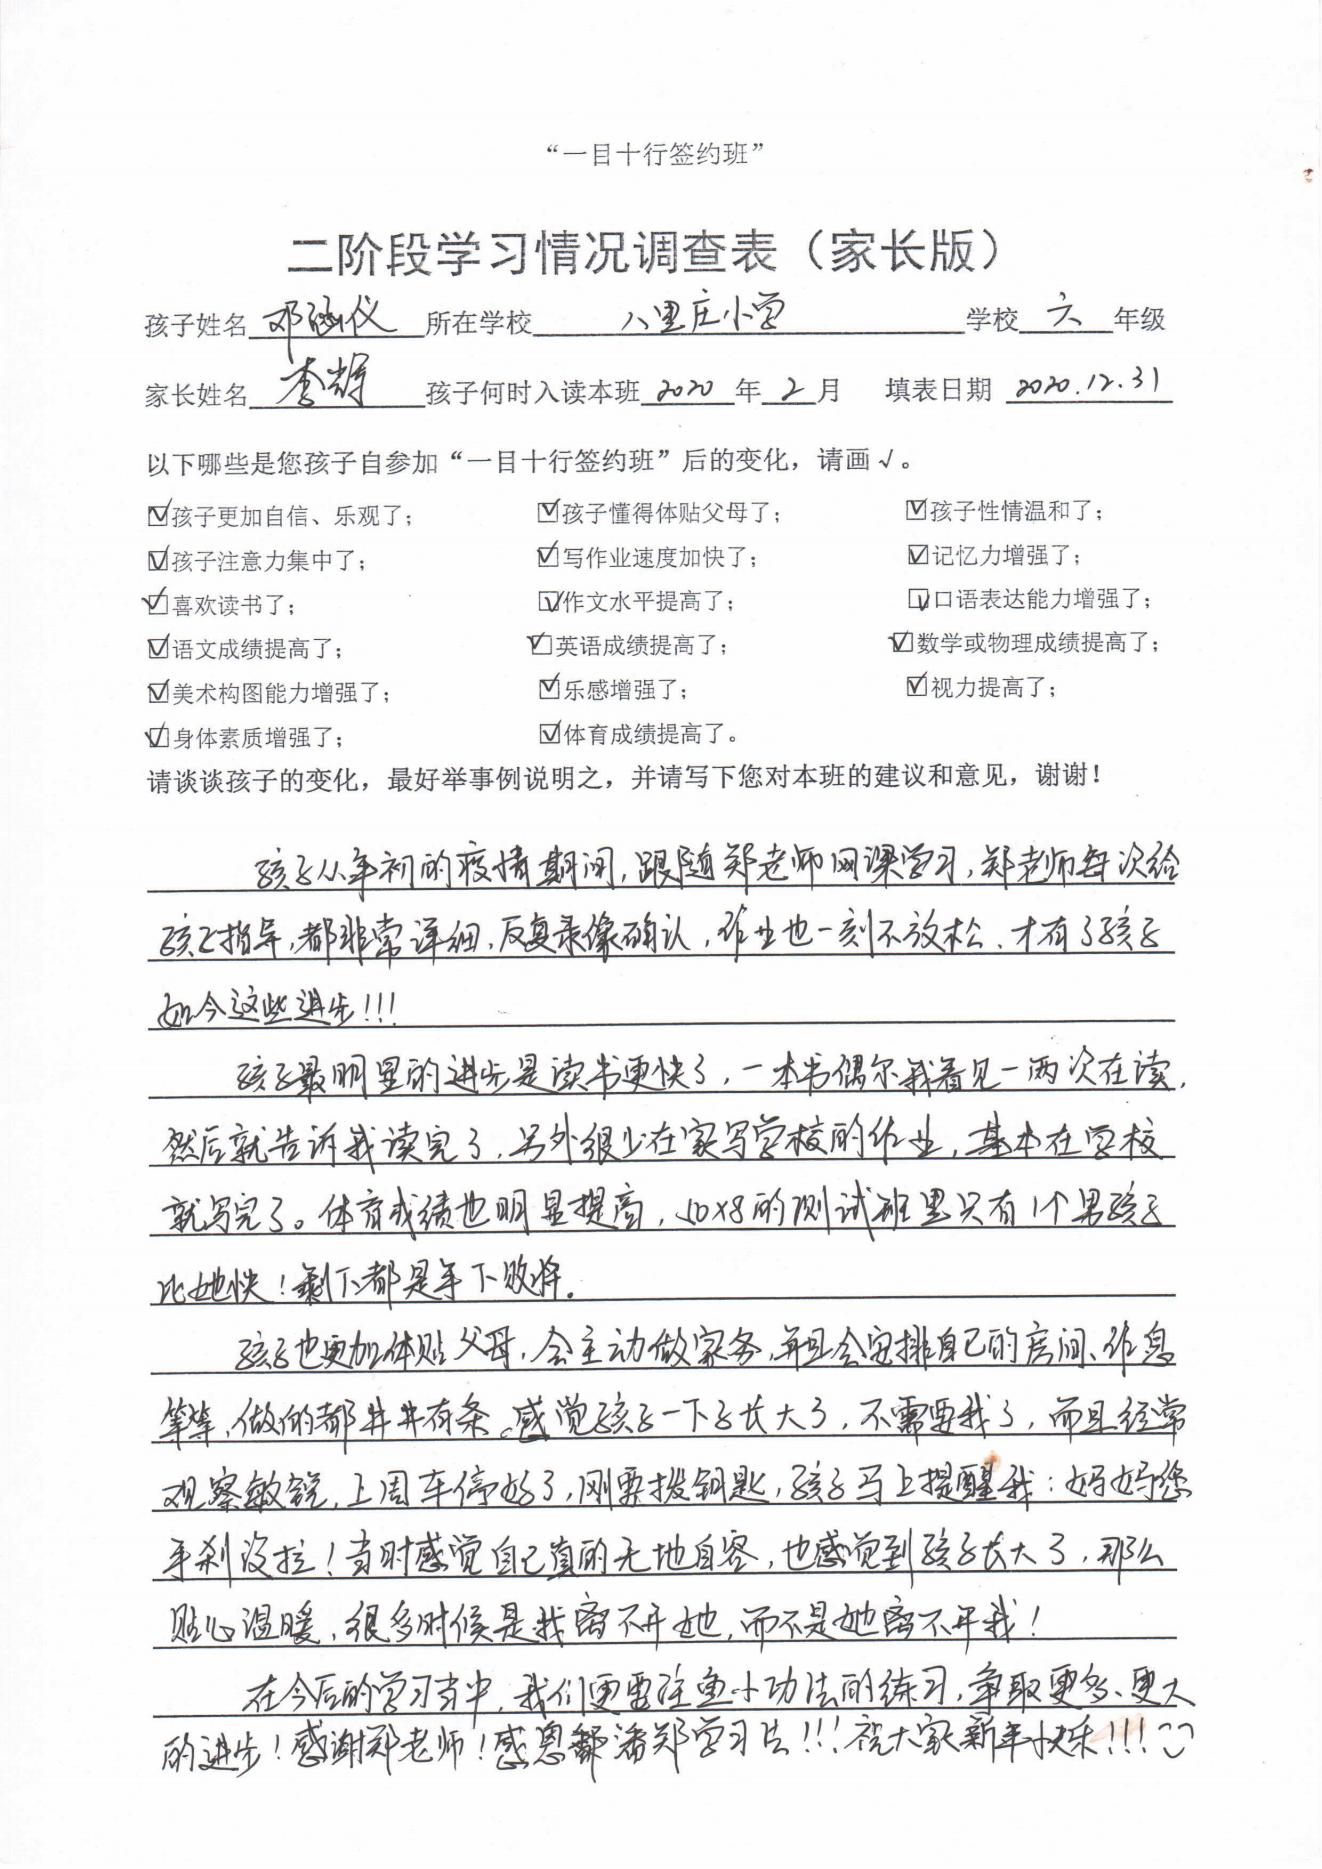 “一目十行签约班”
二阶段学习情况调查表（家长版）
孩子姓名 邓涵仪 所在学校 八里庄小学 学校 六 年级
家长姓名 李辉 孩子何时入读本班 2020 年 2 月 填表日期 2020.12.31
以下哪些是您孩子自参加“一目十行签约班”后的变化，请画√。
☑孩子更加自信、乐观了； ☑孩子懂得体贴父母了； ☑孩子性情温和了；
☑孩子注意力集中了； ☑写作业速度加快了； ☑记忆力增强了；
☑喜欢读书了； ☑作文水平提高了； ☑口语表达能力增强了；
☑语文成绩提高了； ☑英语成绩提高了； ☑数学或物理成绩提高了；
☑美术构图能力增强了； ☑乐感增强了； ☑视力提高了；
☑身体素质增强了； ☑体育成绩提高了。
请谈谈孩子的变化，最好举事例说明之，并请写下您对本班的建议和意见，谢谢！
孩子从年初的疫情期间，跟随郑老师网课学习，郑老师每次给
孩子指导，都非常详细，反复录像确认，作业也一刻不放松、才有了孩子
如今这些进步!!!
孩子最明显的进步是读书更快了，一本书偶尔我看见一两次在读，
然后就告诉我读完了，另外很少在家写学校的作业，基本在学校
就写完了。体育成绩也明显提高，50x8的测试班里只有1个男孩子
比她快！剩下都是手下败将。
孩子也更加体贴父母，会主动做家务，并且会安排自己的房间、作息
等等，做的都井井有条。感觉孩子一下子长大了，不需要我了，而且经常
观察敏锐，上周车停好了，刚要拔钥匙，孩子马上提醒我：妈妈您
手刹没拉！当时感觉自己真的无地自容，也感觉到孩子长大了，那么
贴心温暖，很多时候是我离不开她，而不是她离不开我！
在今后的学习当中，我们更要注重小功法的练习，争取更多、更大
的进步！感谢郑老师！感恩潘郑学习法!!!祝大家新年快乐!!!